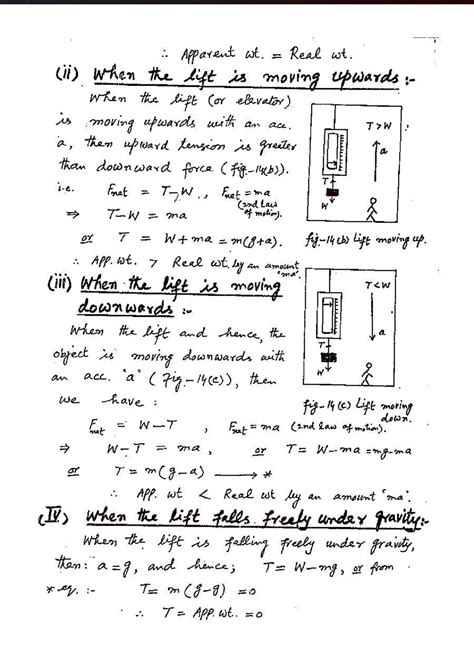 ∴ Apparent wt. = Real wt.
(ii) When the lift is moving upwards :-
When the lift (or elevator)
is moving upwards with an acc.
a, then upward tension is greater
than downward force (fig-14(b)).
i.e. Fnet = T-W , Fnet = ma
(2nd Law of motion).
⇒ T-W = ma
or T = W+ma = m(g+a).
∴ App. wt. > Real wt. by an amount 'ma'.
T>W
a
T
W
fig-14(b) Lift moving up.
(iii) When the lift is moving
downwards :-
When the lift and hence, the
object is moving downwards with
an acc. "a" (Fig-14(c)), then
we have :
T<W
a
T
W
fig-14(c) Lift moving down.
Fnet = W-T , Fnet = ma (2nd Law of motion).
⇒ W-T = ma , or T = W-ma = mg-ma
or T = m(g-a) ⟶ *
∴ App. wt < Real wt by an amount 'ma'.
(IV) When the lift falls freely under gravity:-
When the lift is falling freely under gravity,
then: a=g, and hence; T = W-mg, or from
* eq. :- T = m(g-g) = 0
∴ T = App. wt. = 0